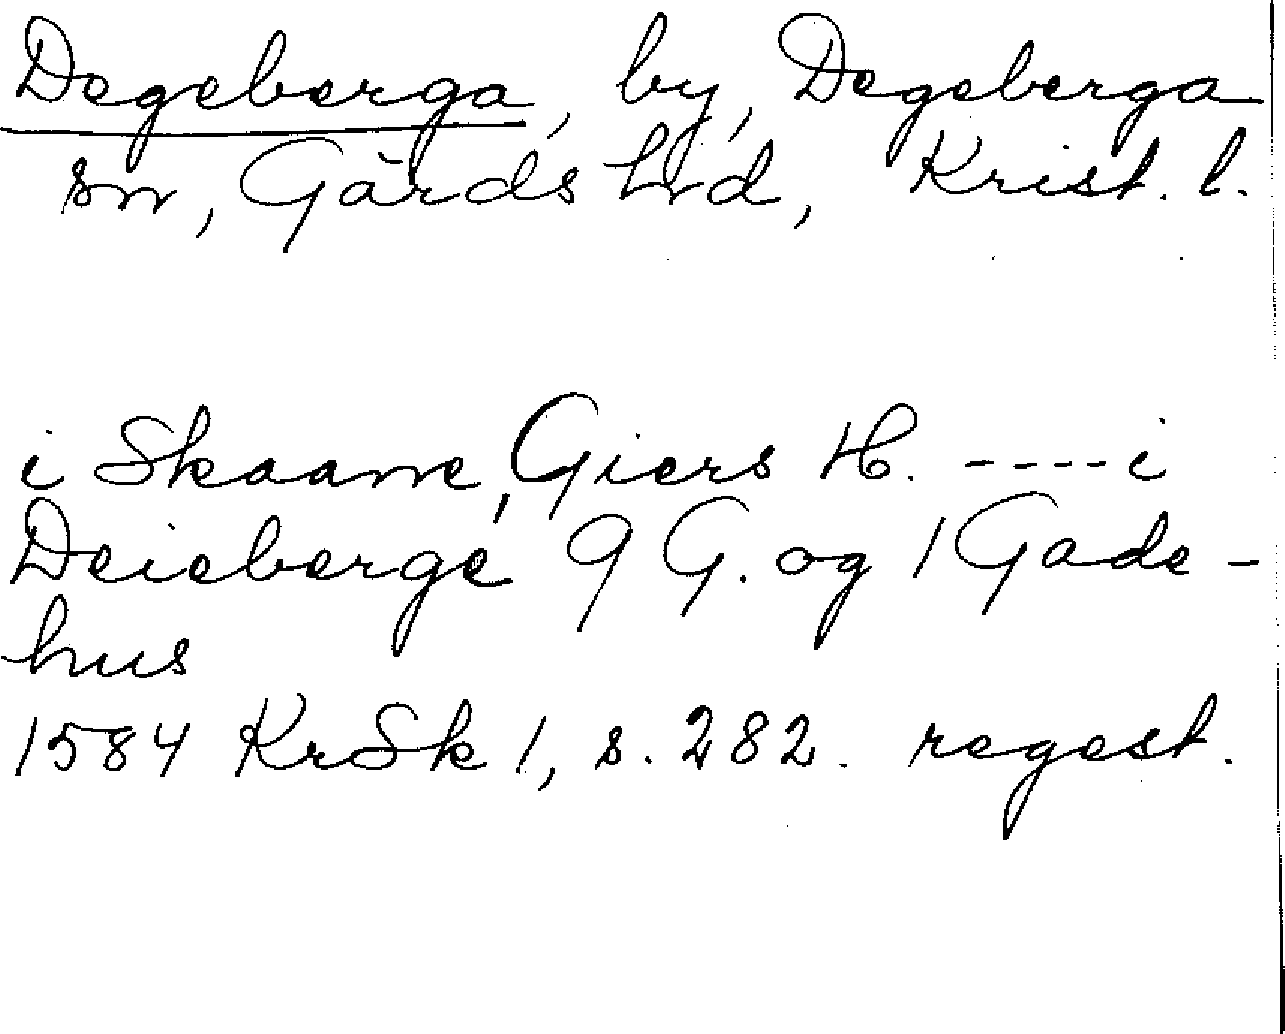 Degeberga, by, Degeberga
sn, Gärds hrd, Krist. l.
i Skaane, Giers H. ----i
Deieberge 9 G. og 1 Gade-
hus
1584 KrSk 1, s. 282. regest.